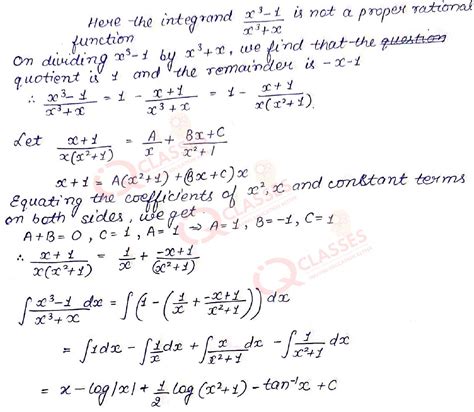 Here the integrand (x³-1)/(x³+x) is not a proper rational
function
On dividing x³-1 by x³+x, we find that the question
quotient is 1 and the remainder is -x-1
∴ (x³-1)/(x³+x) = 1 - (x+1)/(x³+x) = 1 - (x+1)/(x(x²+1))
Let (x+1)/(x(x²+1)) = A/x + (Bx+C)/(x²+1)
x+1 = A(x²+1) + (Bx+C)x
Equating the coefficients of x², x and constant terms
on both sides, we get
A+B=0, C=1, A=1 ⇒ A=1, B=-1, C=1
∴ (x+1)/(x(x²+1)) = 1/x + (-x+1)/(x²+1)
∫ (x³-1)/(x³+x) dx = ∫(1-(1/x + (-x+1)/(x²+1))) dx
= ∫1dx - ∫1/x dx + ∫ x/(x²+1) dx - ∫ 1/(x²+1) dx
= x - log|x| + 1/2 log(x²+1) - tan⁻¹x + C
CLASSES
CLASSES
CLASSES